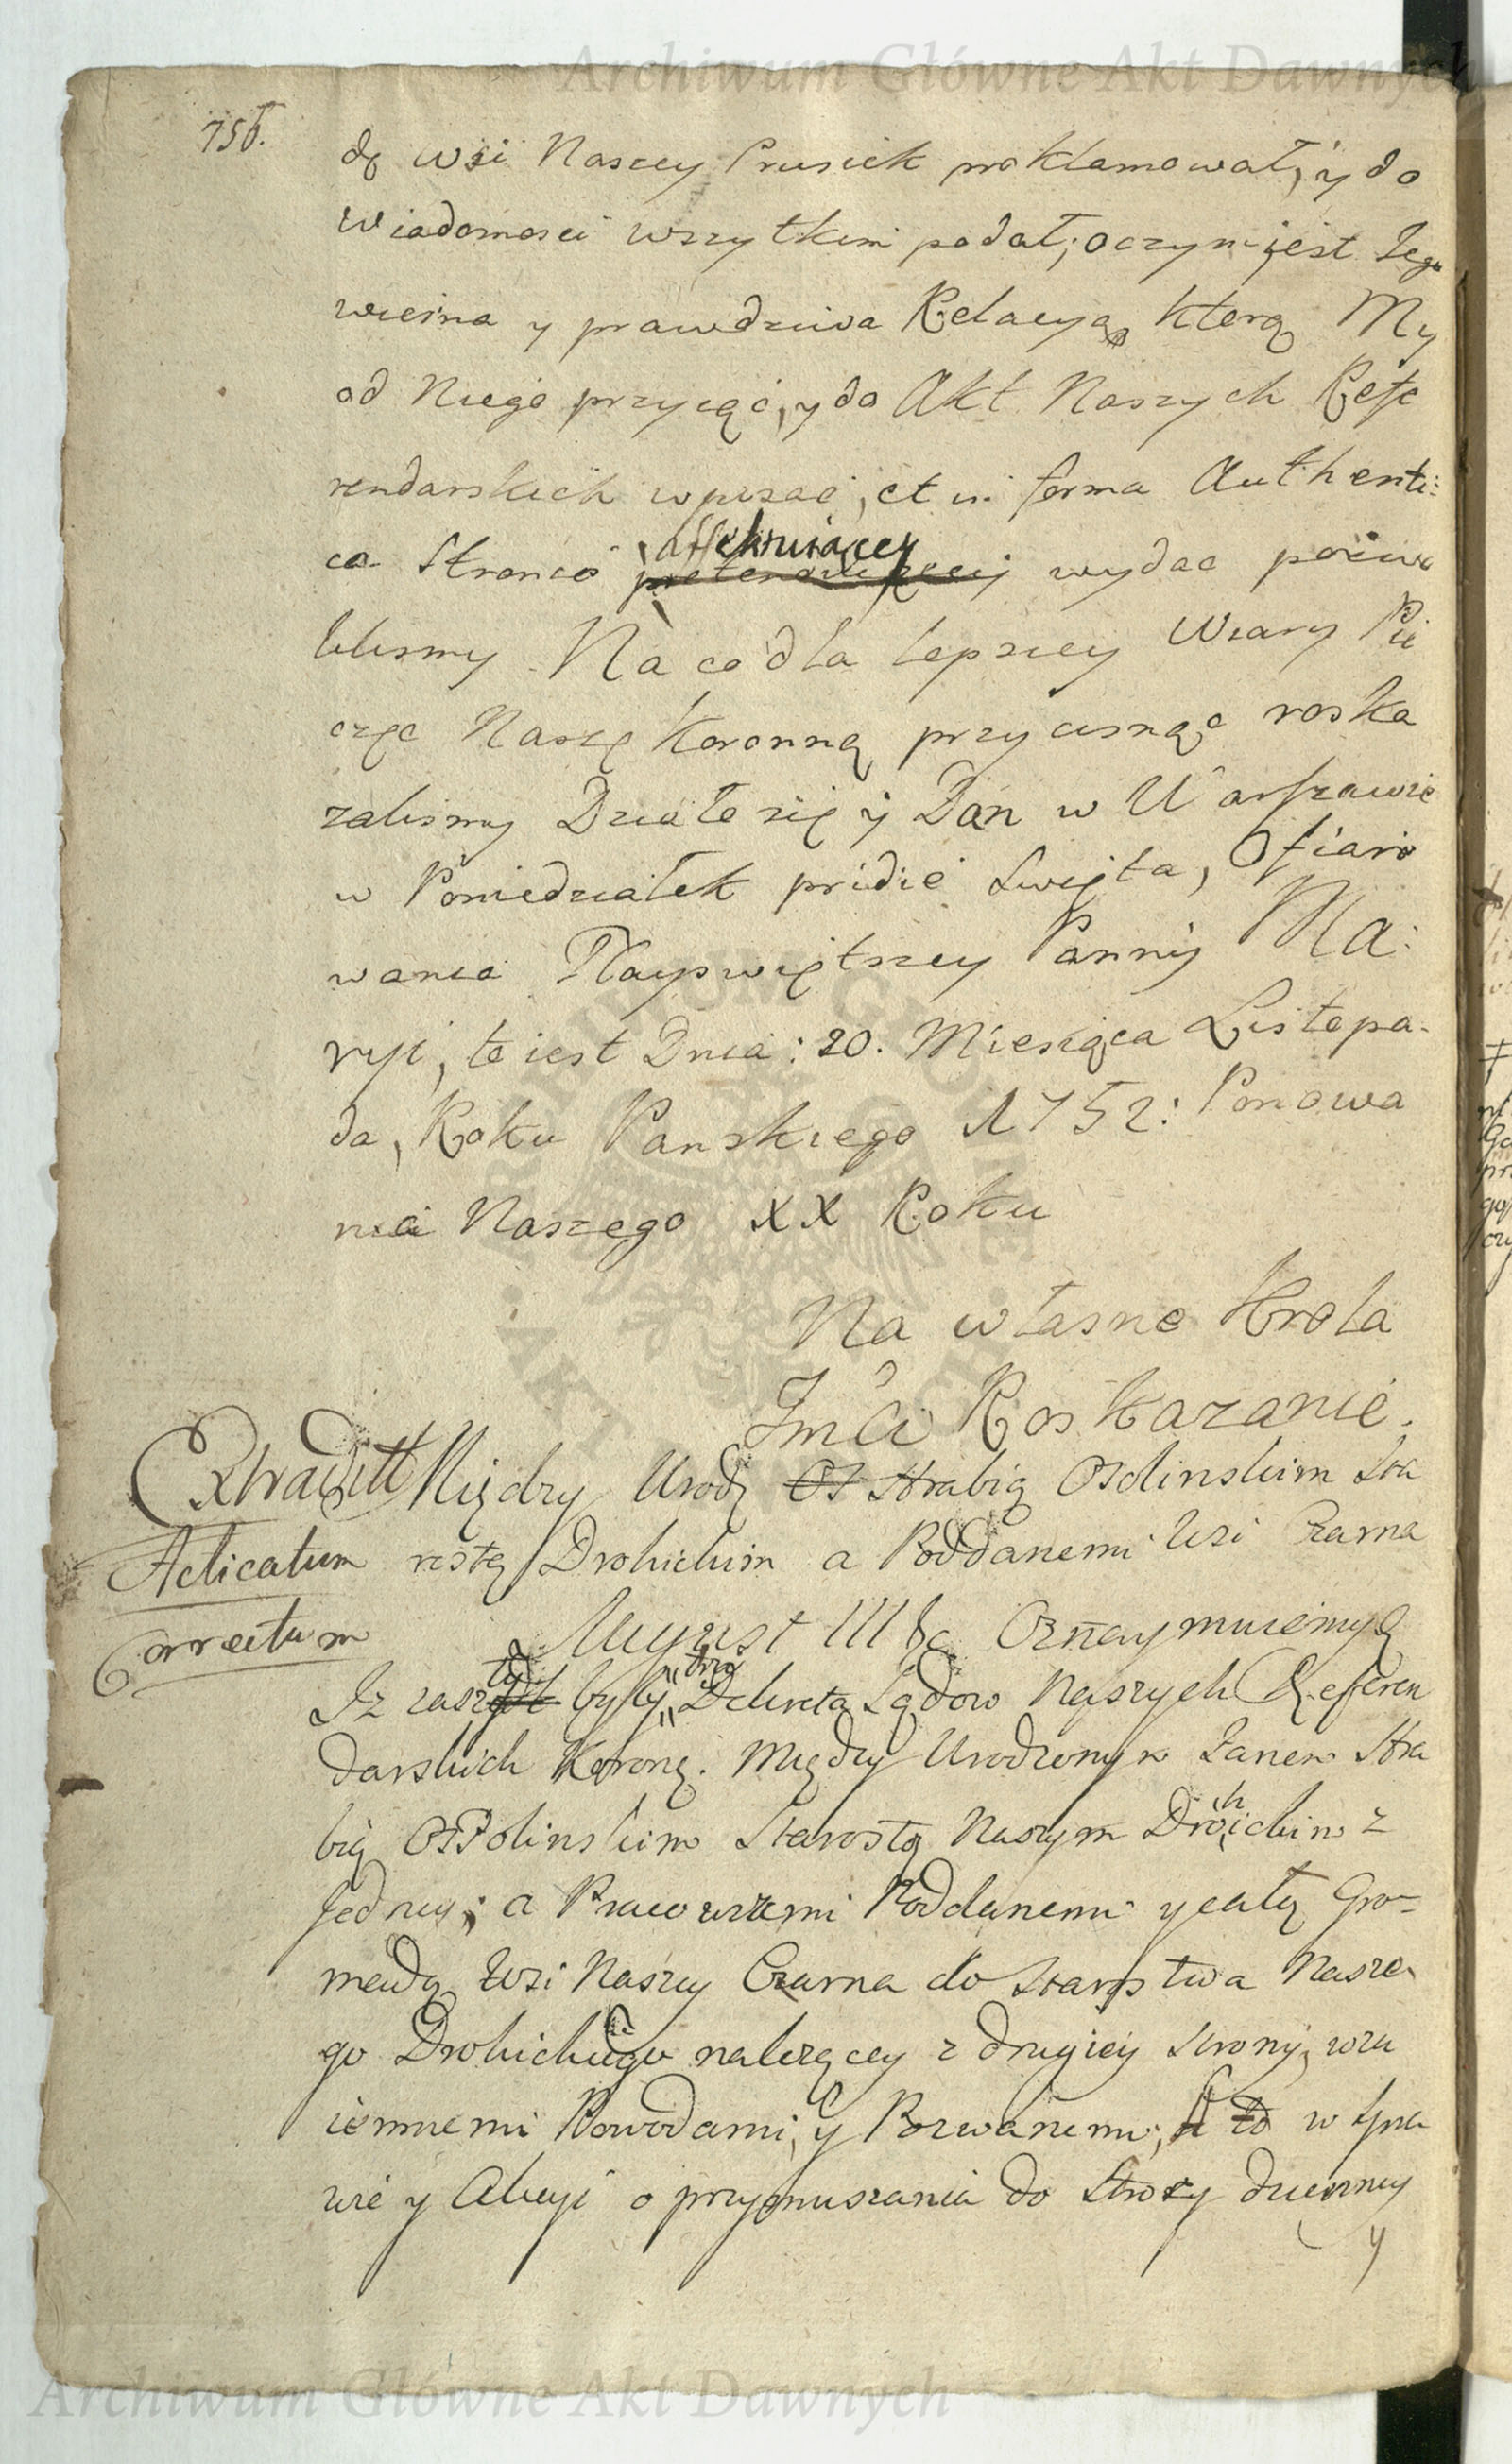 Archiwum Główne Akt Dawnych
756.
dę wsi Naszey Prusiek proklamował, y do
wiadomosci wszytkim podał; o czym jest Jego
wierna y prawdziwa Relacya, ktorą My
od Niego przyiąć, y do Akt Naszych Refe
rendarskich wpisac, et in forma Authenti:
ca Stronie affektuiącey pretenduiącey wydac pozwo
lilismy. Na co dla lepszey Wiary Pie
częc Naszę Koronną przycisnąc roska
zalismy Działo się y Dan w Warszawie
w Poniedziałek pridie Swięta, Ofiaro
wania Nayswiętszey Panny Ma:
ryi, to iest Dnia: 20. Miesiąca Listopa-
da, Roku Panskiego 1752: Panowa
nia Naszego XX Roku
Na własne Krola
Jmći Roskazanie.
Extraditt Między Urodz Os Hrabią Osolinskim Sta
Acticatum rostą Drohickim a Poddanemi Wsi Czarna
Correctum August III &c Oznaymuiemyę
Iz zaszły były dwa Dekreta Sądow Naszych Referen
darskich Koronę. Między Urodzonym Janem Hra
bią Ossolinskim Starostą Naszym Drohickim z
Jedney; a Pracowitemi Poddanemi y całą Gro-
madą Wsi Naszey Czarna do Starostwa Nasze-
go Drohickiego nalezącey z drugiey Strony, wza
iemnemi Powodami, y Pozwanemi; A to w spra
wie y Akcyi o przymuszania do Strozy dzienney
y
Archiwum Główne Akt Dawnych